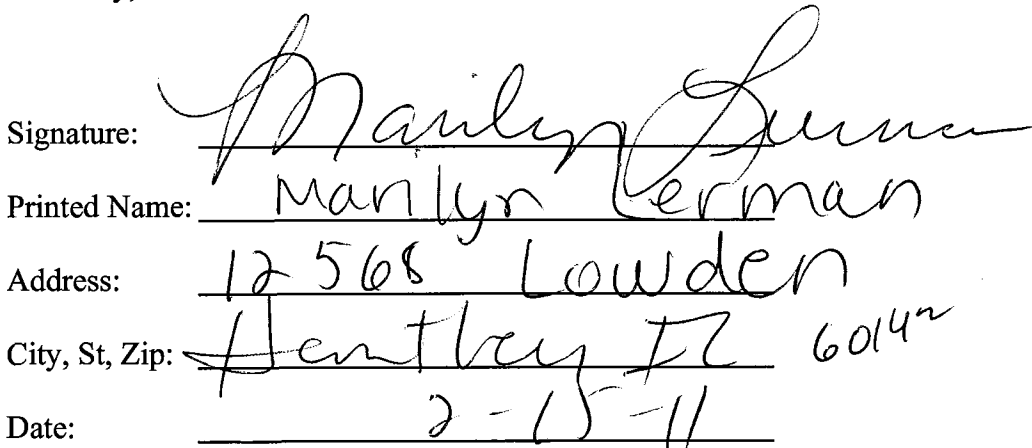 Signature: Marilyn Lerman
Printed Name: Marilyn Lerman
Address: 12568 Lowden
City, St, Zip: Huntley IL 60142
Date: 2-15-11